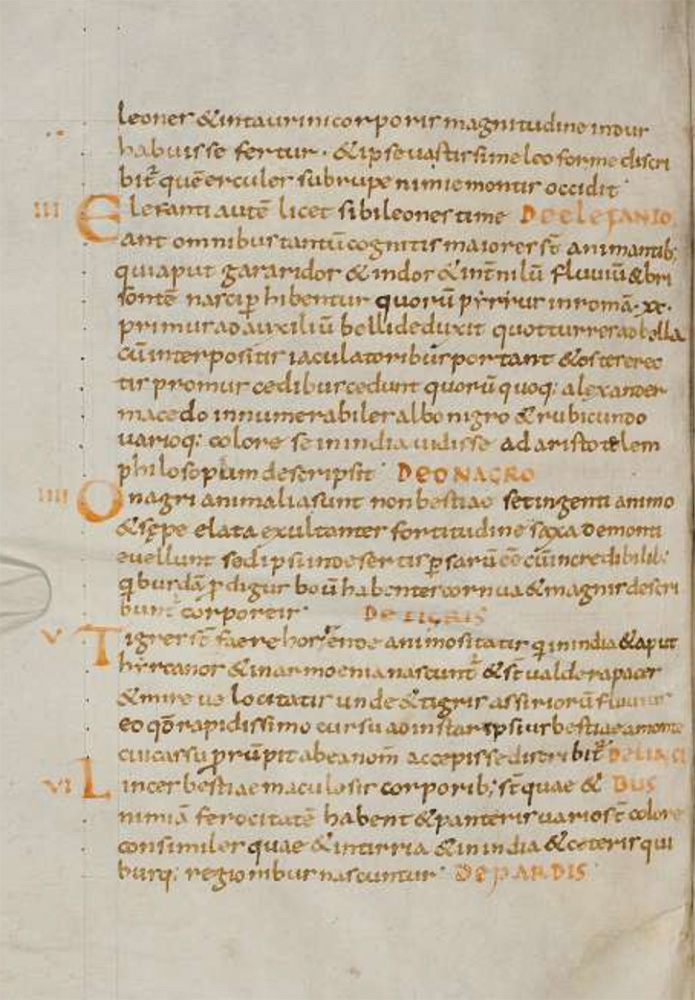 leones & intaurini corporis magnitudine indus
habuisse fertur · & ipse uastissime leo forme discri
bit̄ quē ercules sub rupe nimie montis occidit
III Elefanti autē licet sibi leones time DE ELEFANTO
ant omnibus tantū cognitis maiores st̄ animantib;
qui aput gararidos & indos & int̄ nilū fluuiū & bri
sontē nasci ꝑhibentur quorū pyrrus in romā · xx ·
primus ad auxiliū belli deduxit quot turres ad bella
cū interpositis iaculatoribus portant & ostererec
tis promuscedibus cedunt quorū quoq; alexander
macedo innumerabiles albo nigro & rubicundo
uarioq; colore se in india uidisse ad aristotelem
philosopum descripsit DE ONAGRO
IIII Onagri animalia sunt non bestiae set ingenti animo
& sępe elata exultantes fortitudine saxa de monti
euellunt sed ipsi in desertis ꝑsarū ēē cū incredibilib;
boū habentes cornua & magnis descri
bunt̄ corporeis DE TIGRIS
V Tigres st̄ faere horrende animositatis q in india & aput
hyrcanos & in armoenia nascunt̄ & st̄ ualde rapaces
& mire uelocitatis unde & tigris assiriorū fluuius
eo qđ rapidissimo cursu ad instar ipsius bestiae a monte
prūpit ab ea nom̄ accepisse discribit̄ DE LINCI
VI Linces bestiae maculosis corporib; st̄ quae & BUS
nimiā ferocitatē habent & panteris uario st̄ colore
consimiles quae & in tirria & in india & ceteris qui
busq; regionibus nascuntur DE PARDIS